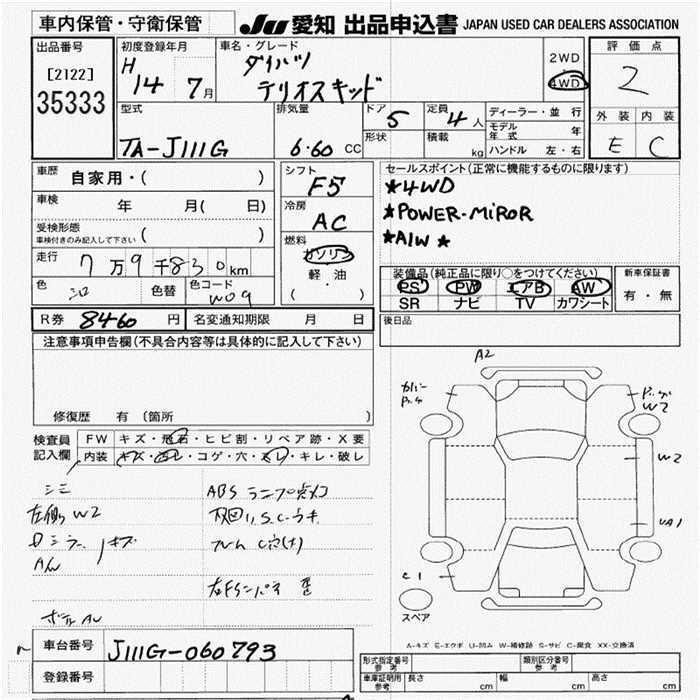 車内保管・守衛保管
JU 愛知 出品申込書 JAPAN USED CAR DEALERS ASSOCIATION
出品番号
[2122]
35333
初度登録年月
H 14 7月
車名・グレード
ダイハツ
テリオスキッド
2WD
4WD
評価点
2
外装 内装
E C
型式
TA-J111G
排気量
6.60 CC
ドア 5
形状
定員 4人
積載 kg
ディーラー・並行
モデル年式 年
ハンドル 左・右
車歴 自家用・( )
車検 年 月( 日)
受検形態
車検付きのみ記入して下さい ( )
走行 7万9千830km
色 シロ 色替 色コード W09
シフト
F5
冷房
AC
燃料
ガソリン
軽・油
( )
セールスポイント(正常に機能するものに限ります)
★4WD
★POWER・MiROR
★A/W ★
装備品(純正品に限り○をつけてください)
PS PW エアB AW
SR ナビ TV カワシート
新車保証書
有・無
R券 8460 円 名変通知期限 月 日
後日品
注意事項申告欄(不具合内容等は具体的に記入して下さい)
修復歴 有 〔箇所 〕
検査員記入欄
FW キズ・飛石・ヒビ割・リペア跡・X要
内装 キズ・汚レ・コゲ・穴・スレ・キレ・破レ
シミ
左側 W2
ABS ランプ点灯
A/W
A2
W2
W2
UA1
C1
スペア
A-キズ E-エクボ U-凹み W-補修跡 S-サビ C-腐食 XX-交換済
車台番号 J111G-060793
登録番号
形式指定番号 参考
類別区分番号 参考
車庫証明用 参考 長さ cm 幅 cm 高さ cm